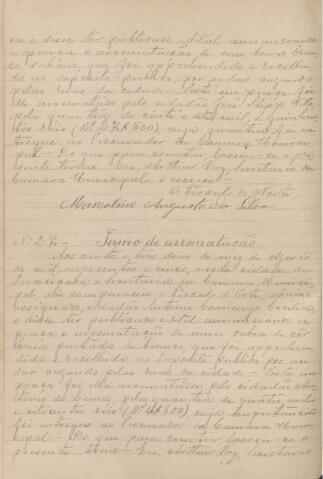 sa e disse ter publicado edital annunciando
a praça e arrematação de uma burra
que foi apprehendida e recolhi
da ao deposito publico por andar vagando
pelas ruas da cidade. Posta em praça foi
ella arrematada pelo cidadão José
pela quantia de vinte e sete mil e quinhen
tos reis cuja quantia foi en
tregue ao Procurador da Camara Munici
pal. Do que para constar, lavrou-se o pre
sente termo. Eu, Arthur Vaz, Secretario da
Camara Municipal, o escrevi.
O Fiscal do Norte
Marcolino Augusto da Silva
N. 27 - Termo de arrematação
Aos vinte e tres dias do mez de Agosto
de mil, novecentos e onze, nesta cidade de
Piracicaba e Secretaria da Camara Munici
pal, ahi compareceu o Fiscal do Norte, abaixo
assignado, cidadão Antonio
e disse ter publicado edital annunciando a
praça e arrematação de uma cabra de côr
pintada de branco que foi apprehen
dida e recolhida ao Deposito Publico por an
dar vagando pelas ruas da cidade. Posta em
praça foi ella arrematada pelo cidadão
de Lima, pela quantia de quatro mil
e oitocentos reis (Rs 4$800) cuja importancia
foi entregue ao Procurador da Camara Muni
cipal. Do que para constar, lavrou-se o
presente termo. Eu, Arthur Vaz, Secretario